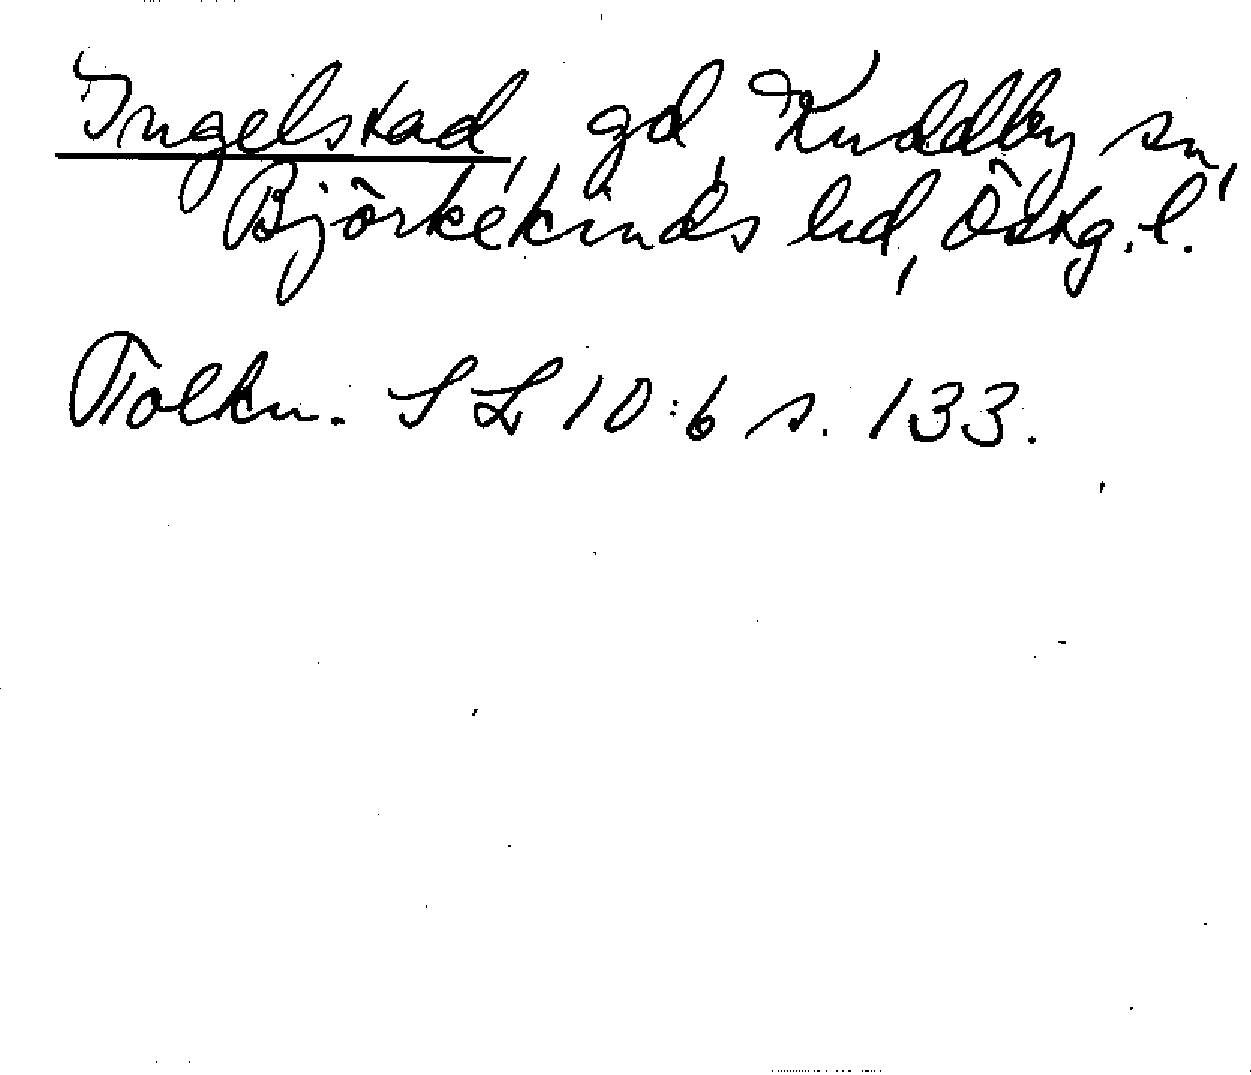 Ingelstad, gd, Kuddby sn,
Björkekinds hd, Östg. l.
Tolkn. SL 10:6 s. 133.